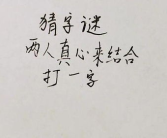 猜字谜
两人真心来结合
打一字